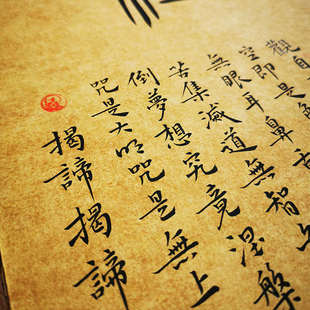 觀自
空即是色
無眼耳鼻舌
苦集滅道無智亦
倒夢想究竟涅槃
咒是大明咒是無上
揭諦揭諦